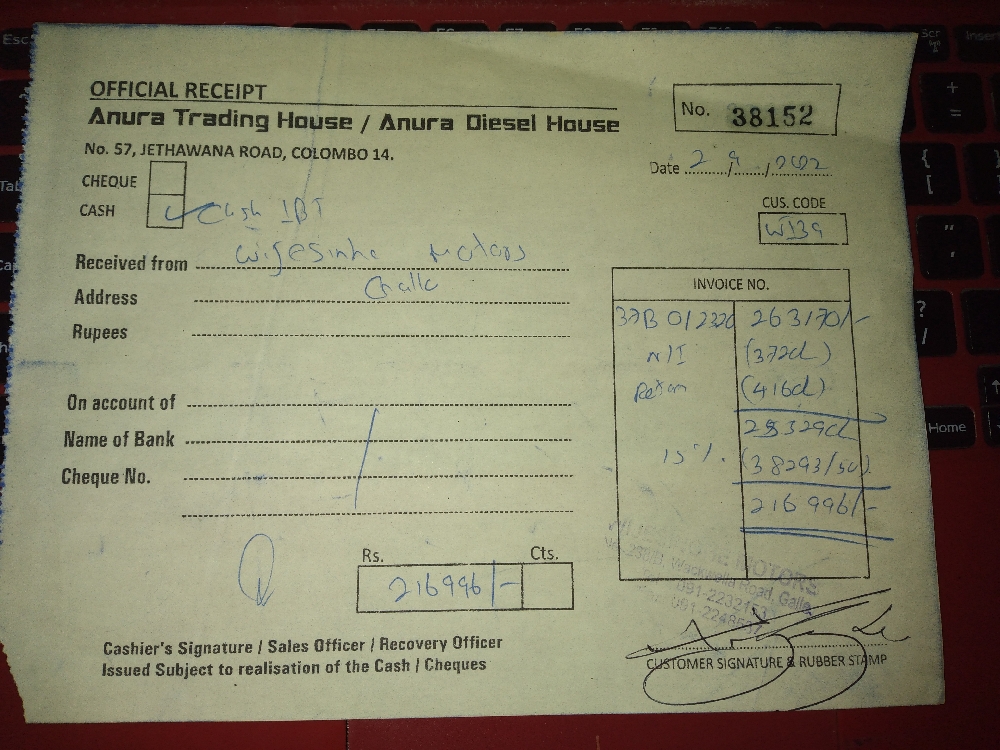 OFFICIAL RECEIPT
Anura Trading House / Anura Diesel House
No. 38152
No. 57, JETHAWANA ROAD, COLOMBO 14.
Date 2/9/2022
CHEQUE
CASH Cash IBT
CUS. CODE
WI39
Received from Wijesinhe Motors
Address Galle
Rupees
INVOICE NO.
37B 012320 263170/-
N/I (3720)
Return (4160)
255290
15%. (38293/50)
216996/-
On account of
Name of Bank
Cheque No.
Rs. Cts.
216996/-
MOTORS
Wackwella Road, Galle
091-2232153
Cashier's Signature / Sales Officer / Recovery Officer
Issued Subject to realisation of the Cash / Cheques
CUSTOMER SIGNATURE & RUBBER STAMP